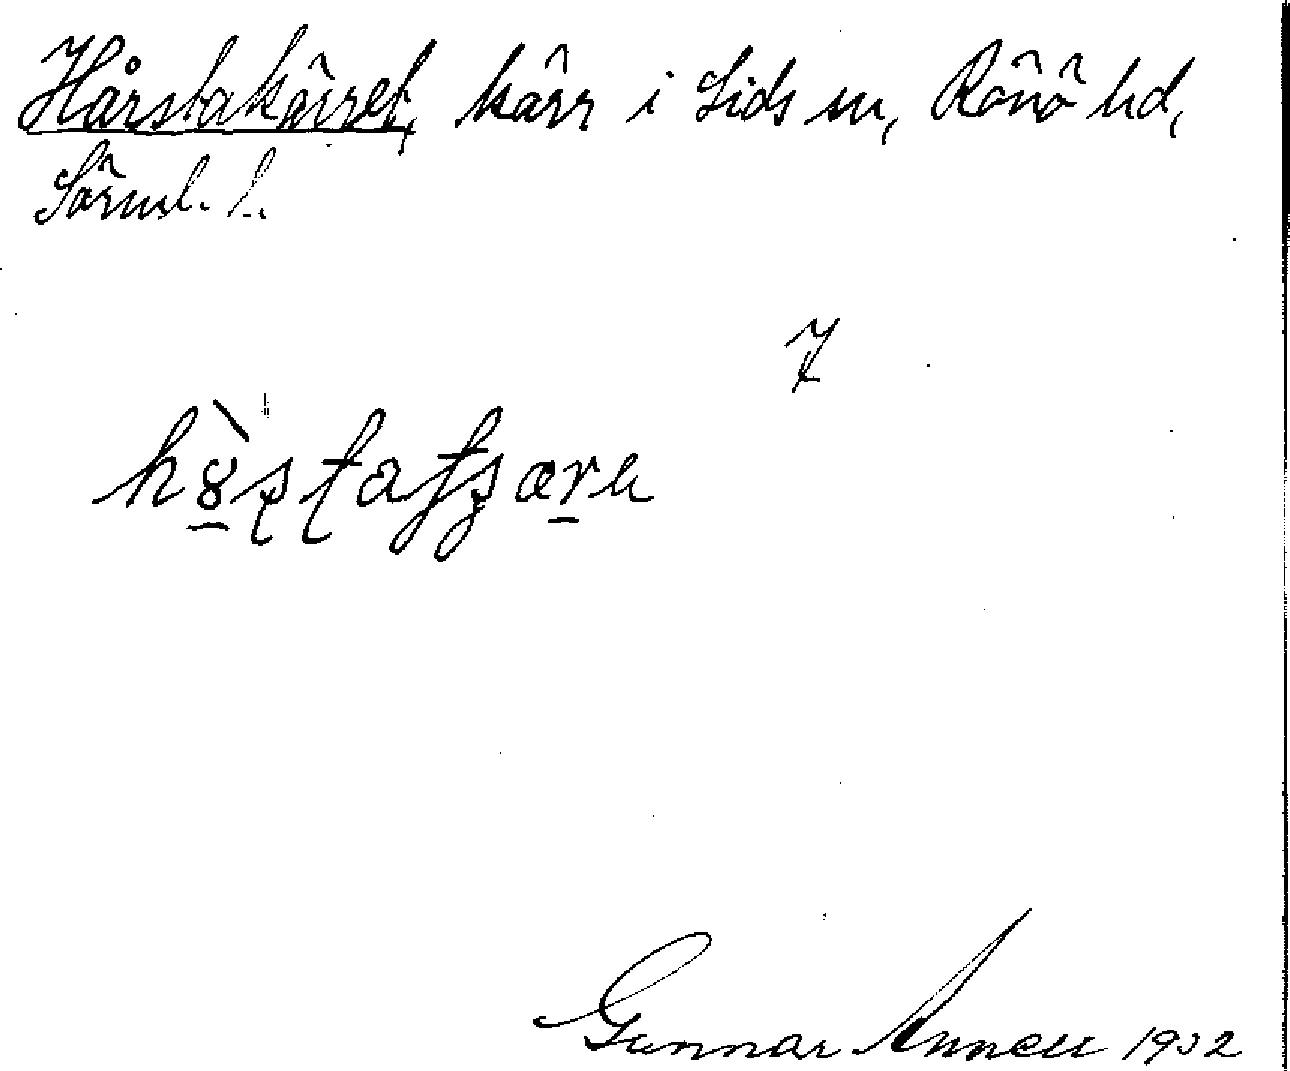 Hårstakärret, kärr i Lids sn, Rönö hd,
Sörml. l.
7
Gunnar Annell 1932